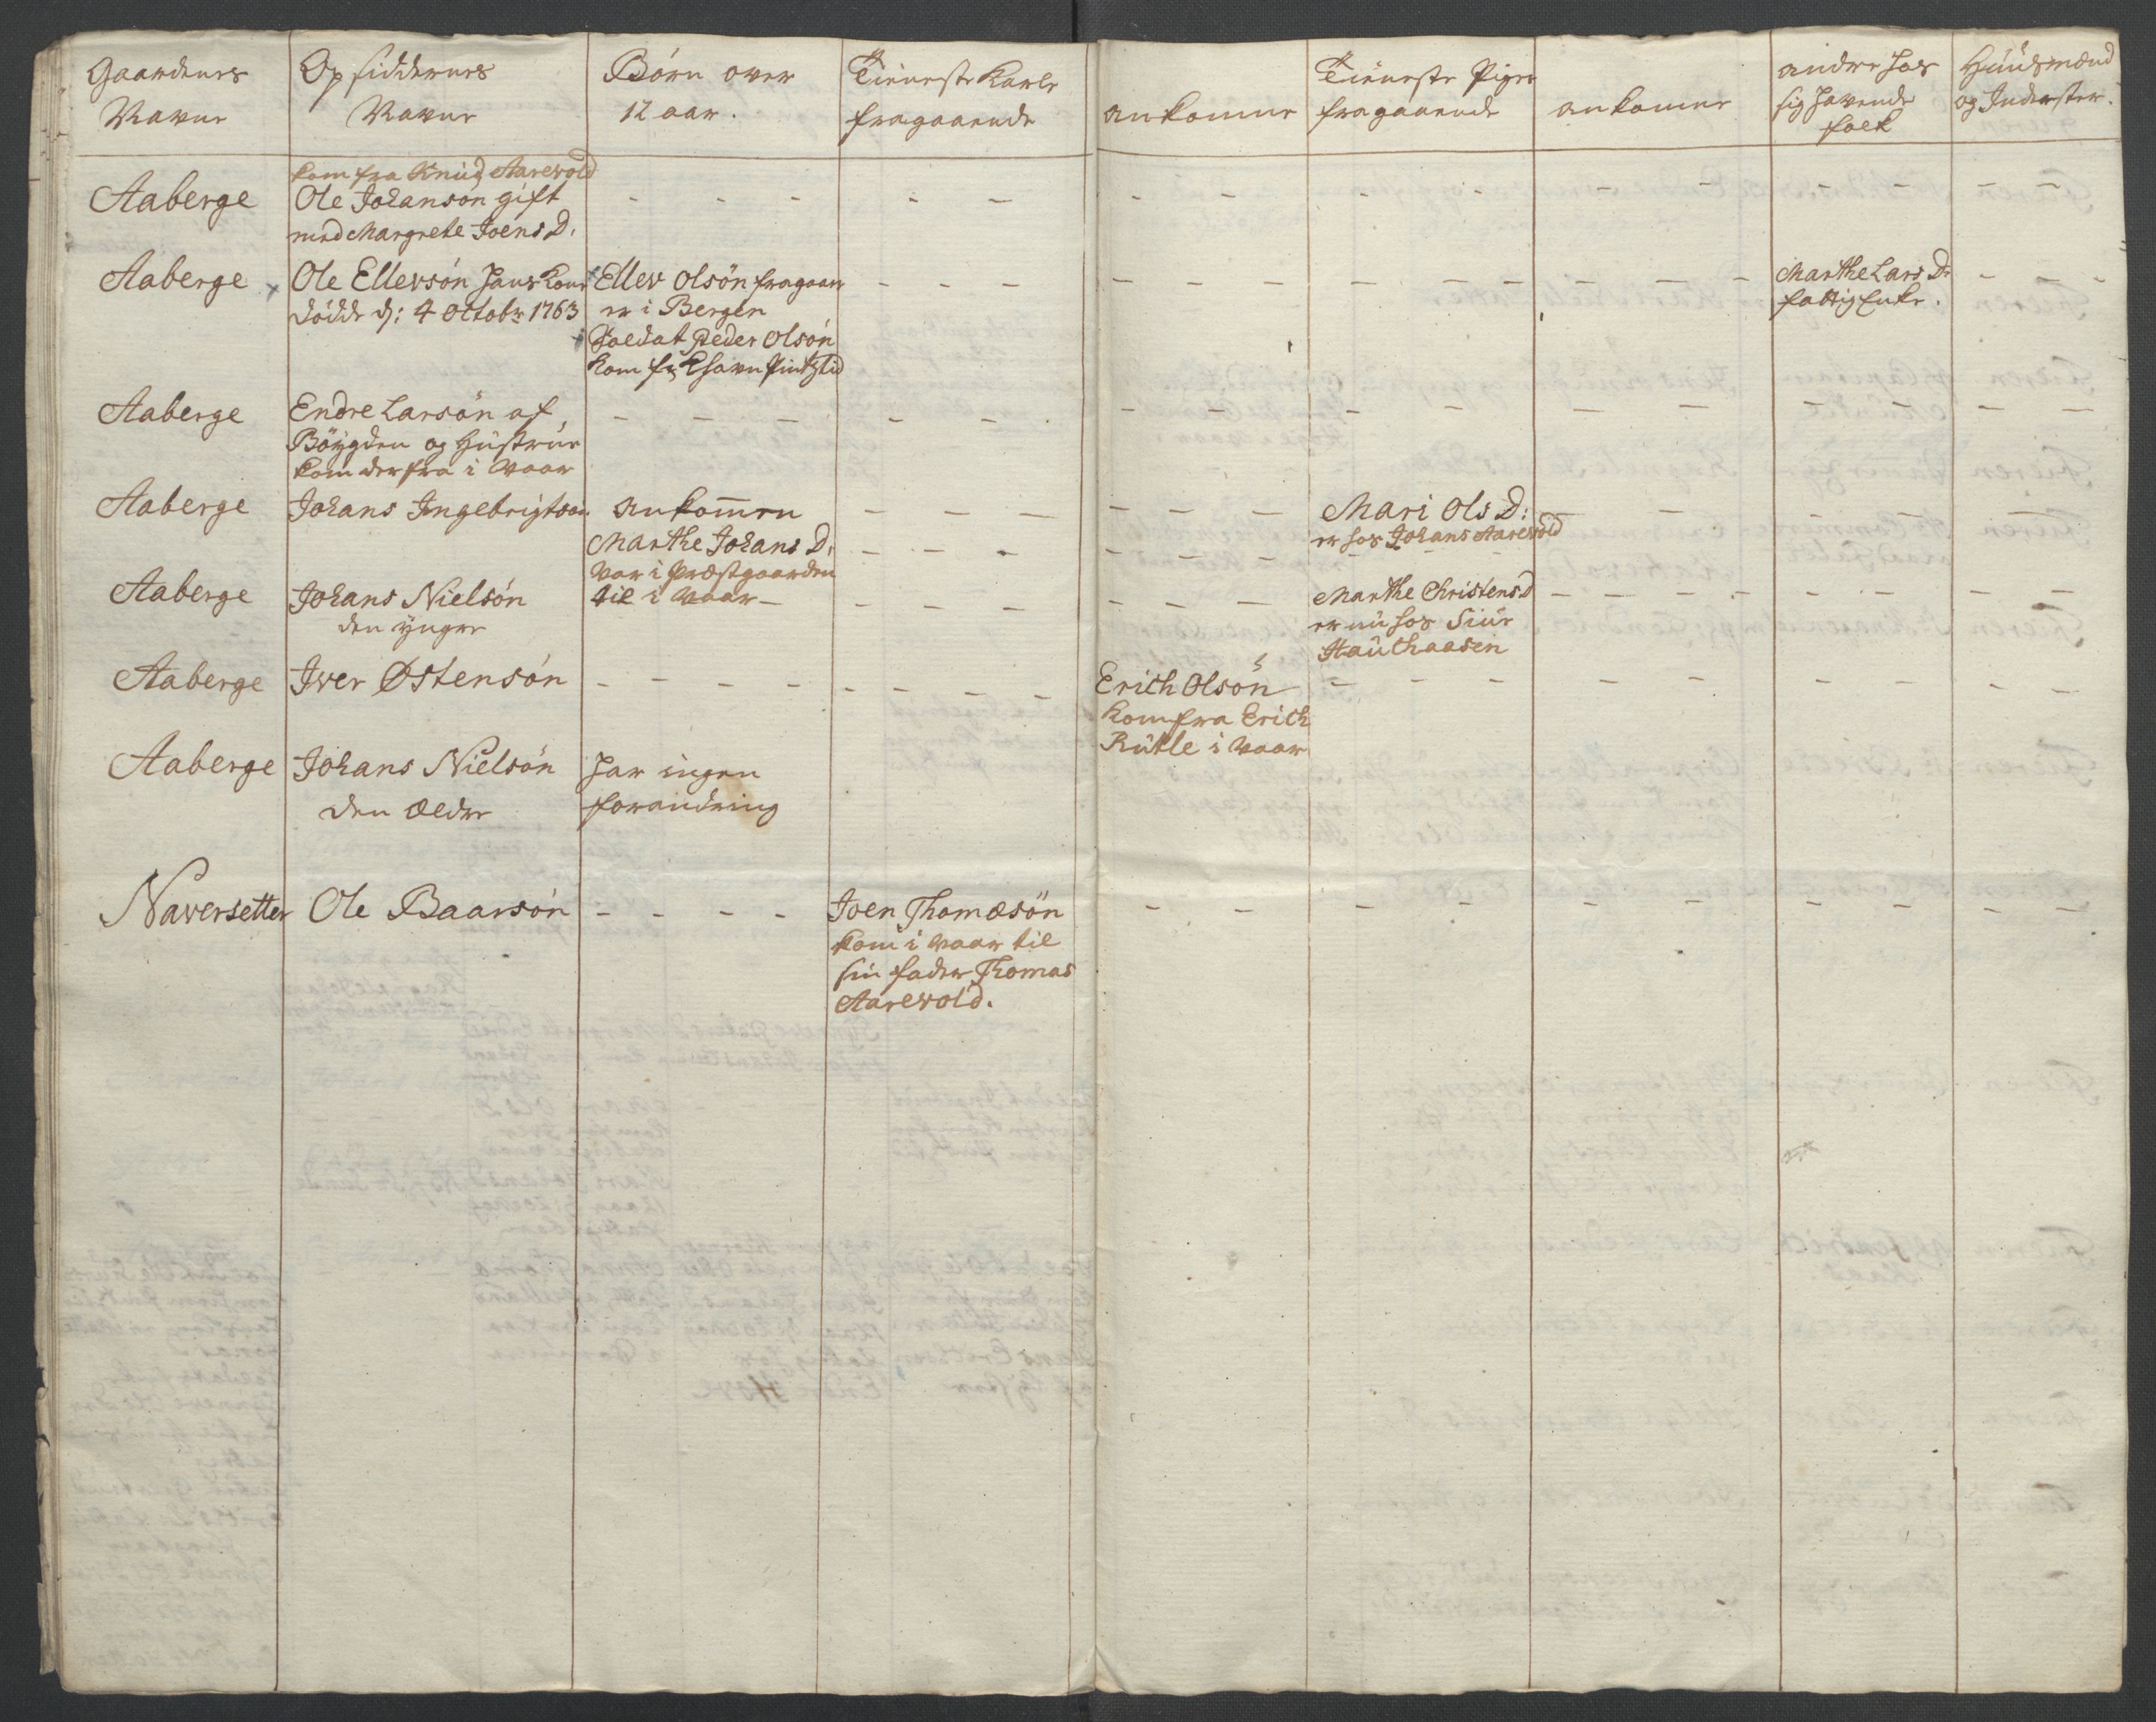 Gaardenes Navne
Opsiddernes Navne
Børn over 12 aar.
Tieneste Karle fragaaende
ankomne
Tieneste Piger fragaaende
ankomne
andre hos sig havende folk
Huusmænd og Inderster.
Aaberge
kom fra Knud Aarevold
Ole Johanson gift
med Margrete Joens D.
- - - - - - - - - - - - - - -
Aaberge
Ole Ellevsön hans Kone
döde d: 4 Octobr 1763
Ellev Olsön fragaar
er i Bergen
Soldat Peder Olsön
kom fr Khavn Pintztid
- - - - - - - - - - - -
Marthe Lars Dr
fattig Enke.
- - -
Aaberge
Endre Larsön af
Böygden og Hustrue
kom derfra i vaar
- - - - - - - - - - - - - - -
Aaberge
Johans Ingebrigtson
ankommen
Marthe Johans D.
var i Præstgaarden
til i vaar -
- - - - - -
Mari Ols D:
er hos Johans Aarevold
- - - - - -
Aaberge
Johans Nielsön
den yngre
- - - - - -
Marthe Christens D
er nu hos Siur
Hauthaasen
- - - - - - - -
Aaberge
Iver Østensön
- - - - - - - -
Erich Olsön
kom fra Erich
Rutle i vaar
- - - - - - - - -
Aaberge
Johans Nielsön
den ælder
har ingen
forandring
Naversetter
Ole Baarsön
- - - -
Joen Thomæsön
kom i vaar til
sin fader Thomas
Aarevold.
- - - - - - - - - -